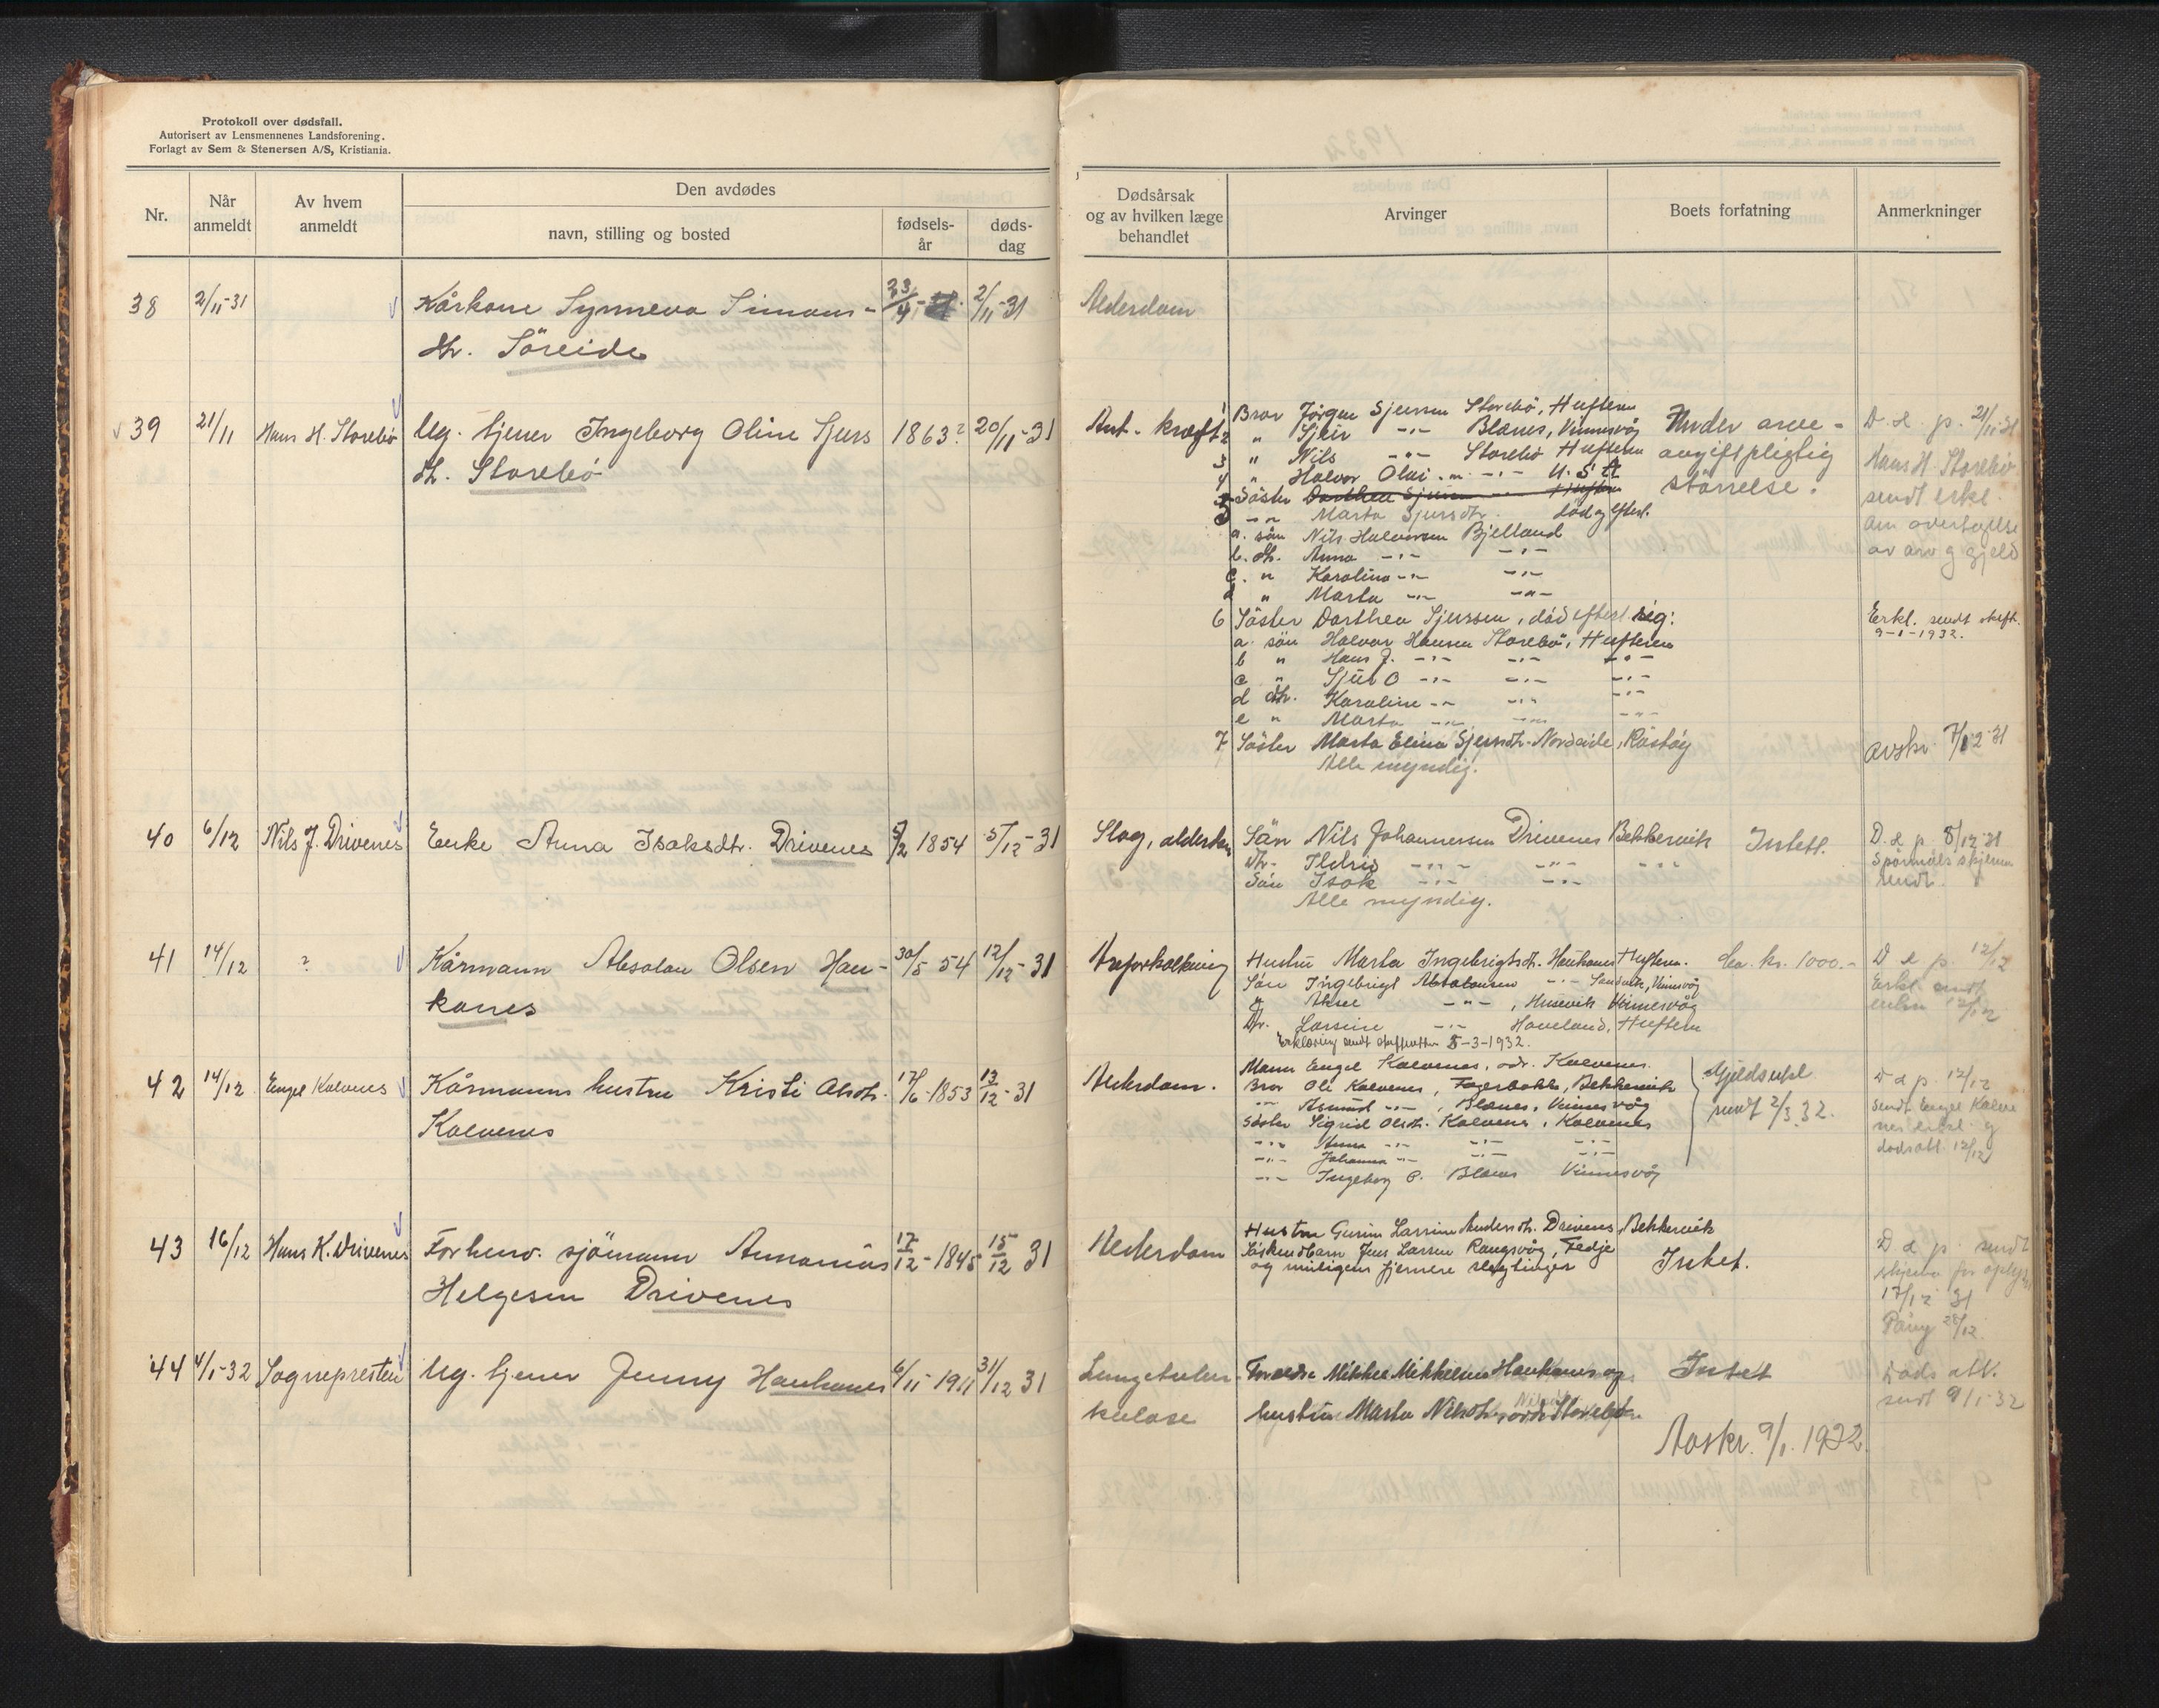 Protokoll over dødsfall.
Autorisert av Lensmennenes Landsforening.
Forlagt av Sem & Stenersen A/S, Kristiania.
Nr.
Når anmeldt
Av hvem anmeldt
Den avdødes
navn, stilling og bosted
fødsels-år
døds-dag
Dødsårsak og av hvilken læge behandlet
Arvinger
Boets forfatning
Anmerkninger
38 2/11-31 Kårkone Synneva Simons- 23/4- 2/11-31 Alderdom
dtr. Söreide
39 21/11 Hans H. Storebö Ug. tjener Ingeborg Oline Sjurs 1863? 20/11-31 Ant. kræft
dtr. Storebö
1 Bror Jörgen Sjursen Storebö, Huftern
2 " Sjur -"- Blænes, Vinnesvåg
3 " Nils -"- Storebö Huftern
4 " Halvor Olai -"- U.S.A
Söster Dorthea Sjursen
5 -"- Marta Sjursdtr. död og efterl.
a. sön Nils Halvorsen Bjelland
b. dtr. Anna -"- -"-
c. " Karolina -"- -"-
d " Marta -"- -"-
6 Söster Dorthea Sjursen, död efterl. sig:
a. sön Halvor Hansen Storebö, Huftern
b " Hans J. -"- -"- -"-
c " Sjur O -"- -"- -"-
d dtr. Karoline -"- -"- -"-
e " Marta -"- -"- -"-
7 Söster Marta Elina Sjursdtr. Nordeide, Röstöy
Alle myndig.
Under arve-
avgiftspligtig
störrelse.
D. d. p. 21/11-31
Hans H. Storebö
sendt erkl.
om overtagelse
av arv og gjeld
Erkl. sendt skift.
9-1-1932.
avskr. 7/12-31
40 6/12 Nils J. Drivenes Enke Anna Isaksdtr. Drivenes 5/2 1854 5/12-31 Slag, alderdom
Sön Nils Johannessen Drivenes Bekkervik
Dtr. -"- -"- -"-
Sön Isak -"- -"-
Alle myndig.
Intett.
D. d. p. 8/12-31
Spörmålsskjema
sendt.
41 14/12 ? Kårmann Absalon Olsen Hau- 30/5 54 12/12-31 Areforkalkning
kanes
Hustru Marta Ingebrigtsdtr. Haukanes Huftern.
Sön Ingebrigt Absalonsen -"- Sandvik, Vinnesvåg
" Aksel -"-, Husevik Vinnesvåg
Dtr. Larsine -"- Haveland, Huftern
Erklæring sendt skifteretten 5-3-1932.
Ca. kr. 1000.-
D d p. 12/12
Erkl. sendt
enken 12/12
42 14/12 Engel Kalvenes Kårmanns hustru Kristi Olsdtr. 17/6-1853 13/12-31 Alderdom.
Kalvenes
Mann Engel Kalvenes, adr. Kalvenes.
Bror Oli Kalvenes, Fagerbakke, Bekkervik
-"- Asmund -"-, Blænes, Vinnesvåg
Söster Sigrid Olsdtr. Kalvenes, Kalvenes
-"- Anna -"- -"- -"-
-"- Johanna -"- -"- -"-
-"- Ingeborg O. Blænes Vinnesvåg
Gjeldserkl.
sendt 2/3 32.
D d p. 12/12
sendt Engel Kalve
nes erkl. og
dødsatt. 12/12
43 16/12 Hans K. Drivenes Forhenv. sjömann Annanias 17/12-1845 15/12 31 Alderdom
Helgesen Drivenes
Hustru Gurine Larsine Andersdtr. Drivenes, Bekkervik
Söskendbarn Jens Larsen Rongsvåg, Fedje
og muligens fjernere slegtinger
Intet.
D d p. sendt
skjema for oplysn.
17/12 31
Påny 28/12.
44 4/1-32 Sognepresten Ug. tjener Jenny Haukanes 6/11-1911 31/12 31 Lungetuber-
kulose
Foreldre Mikkel Mikkelsen Haukanes og
hustru Marta Nilsdtr.
Intet
Döds att.
sendt 9/1-32
Avskr. 9/1. 1932.